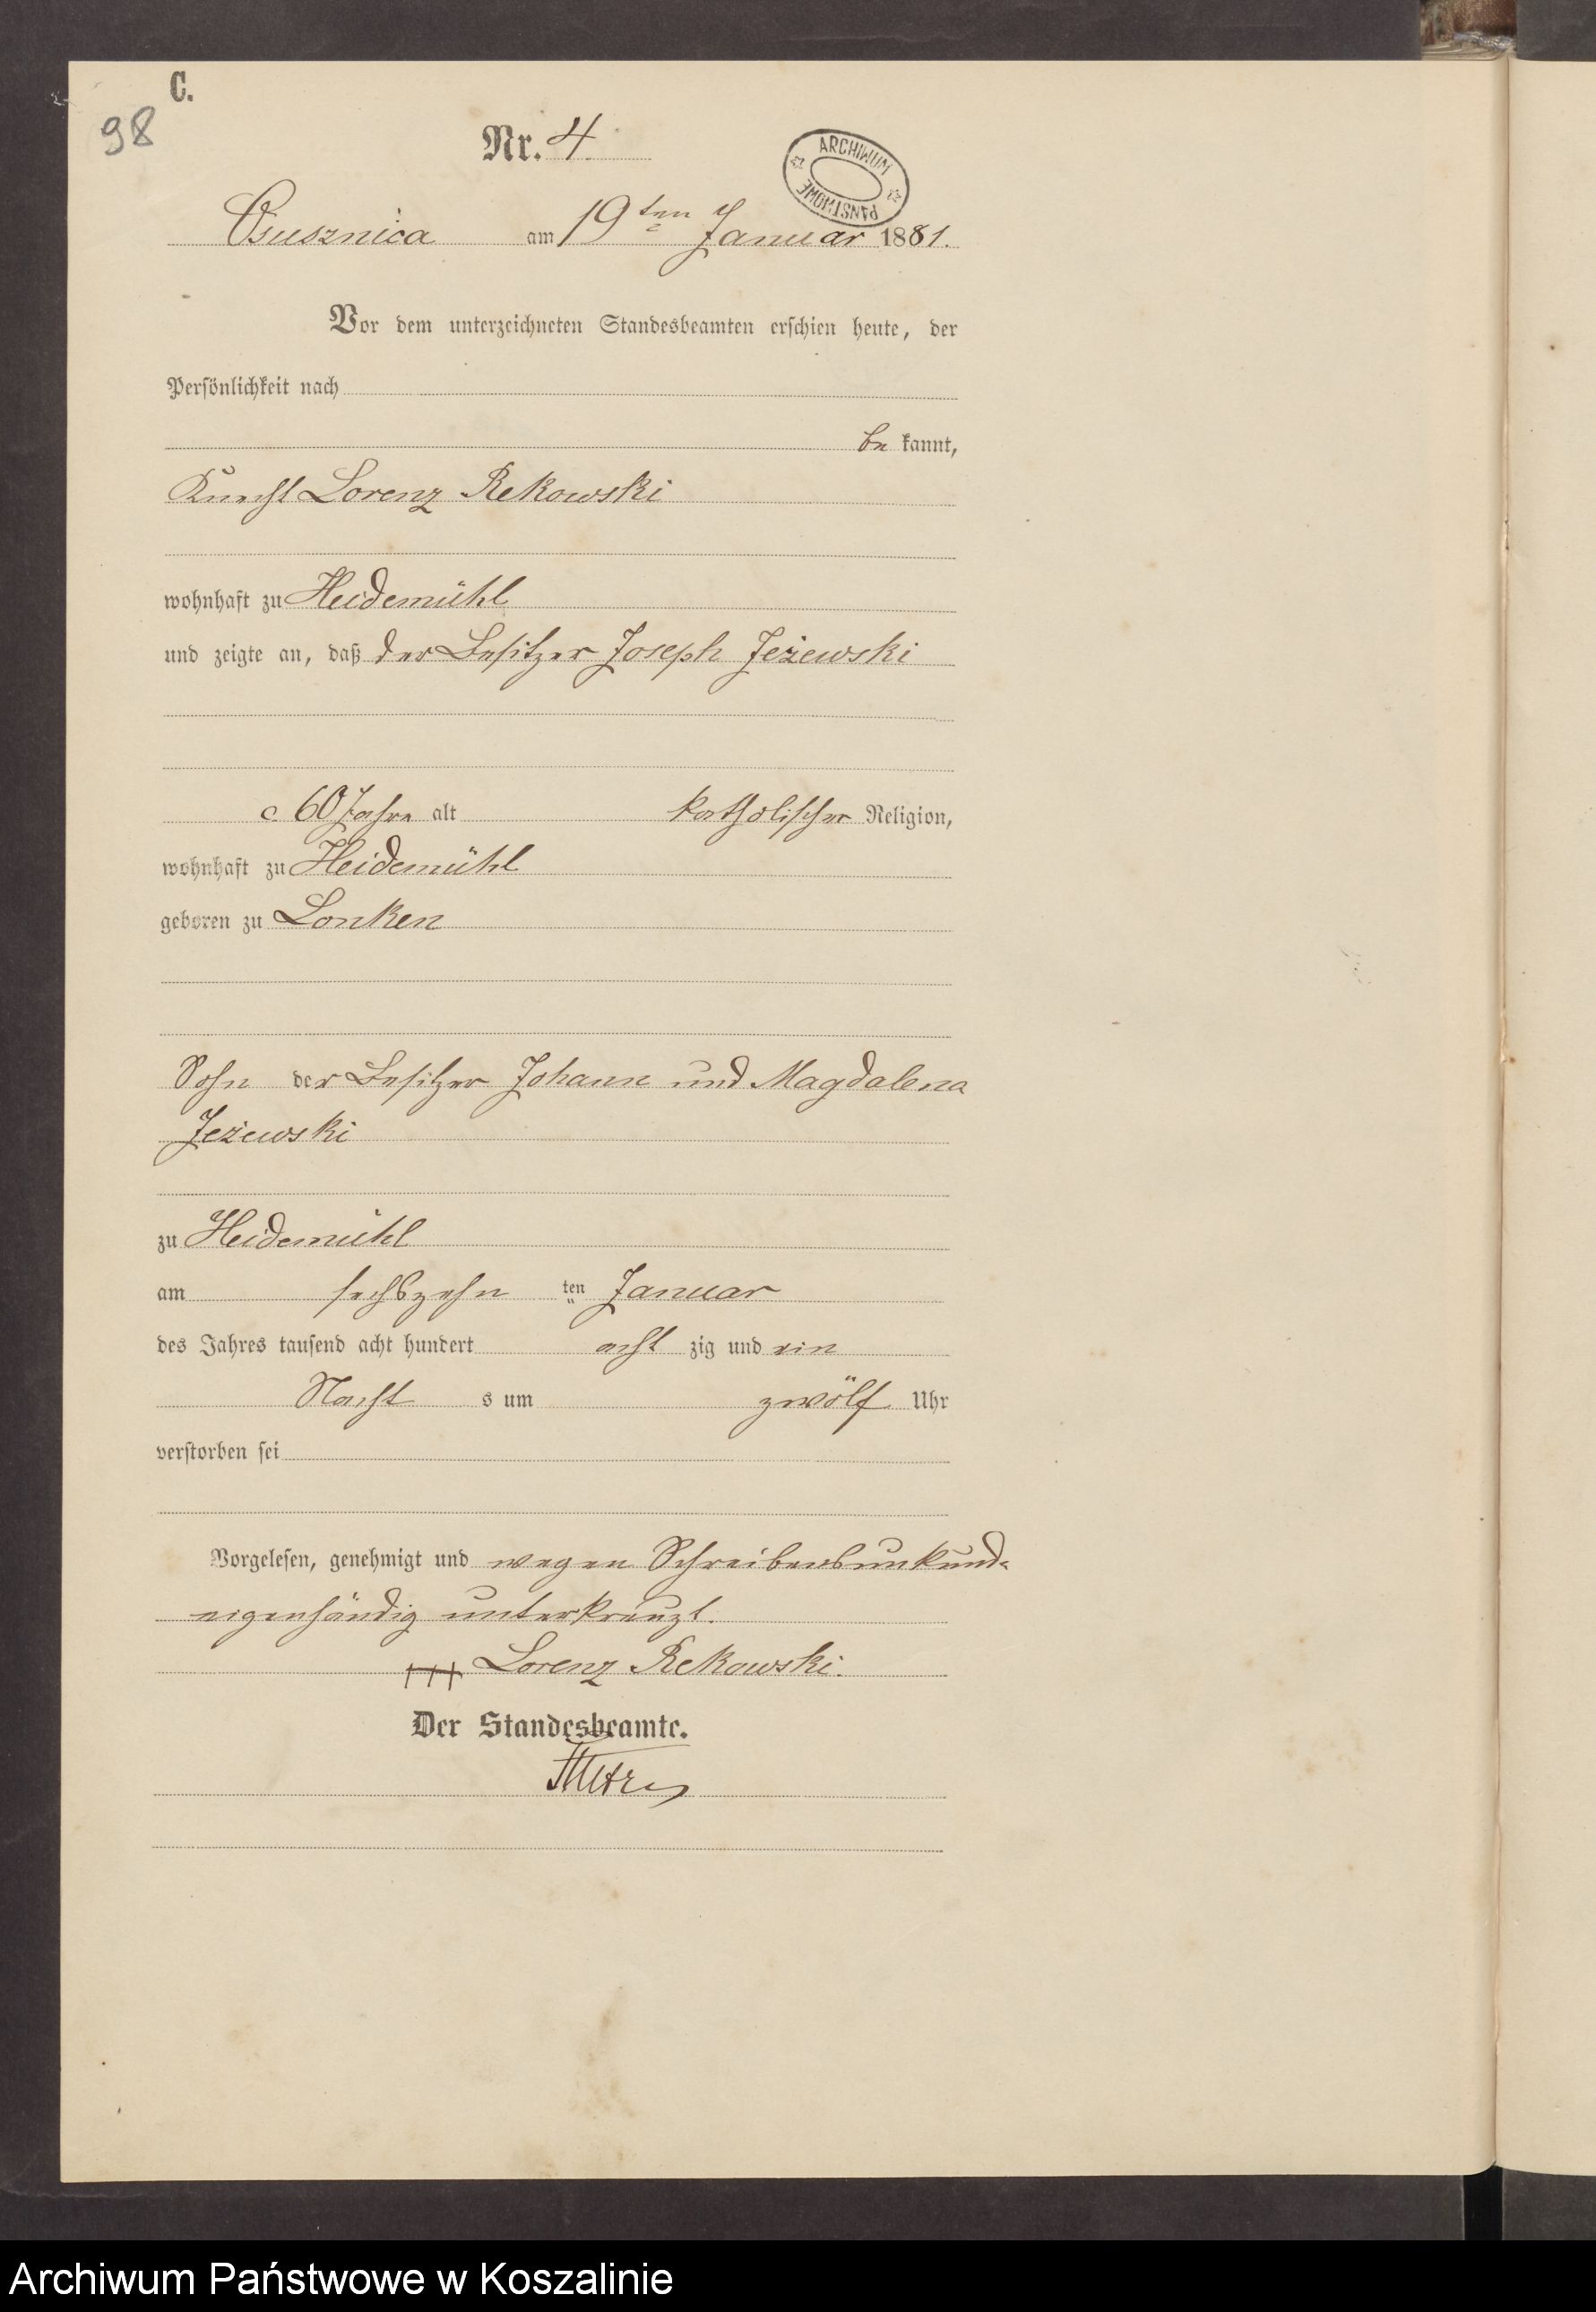 C.
98
Nr. 4.
ARCHIWUM PAŃSTWOWE
Osusznica am 19ten Januar 1881.
Vor dem unterzeichneten Standesbeamten erschien heute, der
Persönlichkeit nach
be kannt,
Knecht Lorenz Rekowski
wohnhaft zu Heidemühl
und zeigte an, daß der Besitzer Joseph Jeżewski
c. 60 Jahre alt katholischer Religion,
wohnhaft zu Heidemühl
geboren zu Lonken
Sohn der Besitzer Johann und Magdalena
Jeżewski
zu Heidemühl
am sechszehn ten Januar
des Jahres tausend acht hundert acht zig und ein
Nacht s um zwölf Uhr
verstorben sei
Vorgelesen, genehmigt und wegen Schreibensunkund-
eigenhändig unterkreuzt.
+++ Lorenz Rekowski.
Der Standesbeamte.
Archiwum Państwowe w Koszalinie